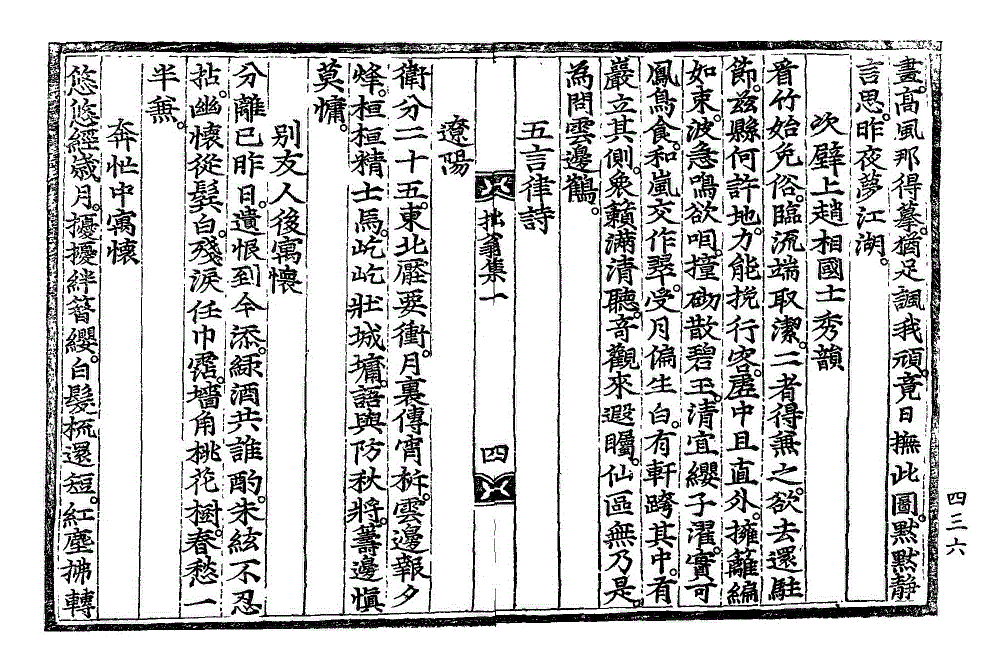 畫。高風那得摹。猶足諷我頑。竟日撫此圖。黙黙靜
言思。昨夜夢江湖。
次壁上趙相國士秀韻
看竹始免俗。臨流端取潔。二者得兼之。欲去還駐
節。玆縣何許地。力能挽行客。虛中且直外。擁籬編
如束。波急鳴欲咽。撞砌散碧玉。淸宜纓子濯。實可
鳳鳥食。和嵐交作翠。受月偏生白。有軒跨其中。有
巖立其側。衆籟滿淸聽。奇觀來遐矚。仙區無乃是。
為問雲邊鶴。
五言律詩
拙翁集一
四
遼陽
衛分二十五。東北壓要衝。月裏傳宵柝。雲邊報夕
烽。桓桓精士馬。屹屹壯城墉。語與防秋將。籌邊愼
莫慵。
別友人後寓懷
分離已昨日。遺恨到今添。綠酒共誰酌。朱絃不忍
拈。幽懷從鬂白。殘淚任巾霑。墻角桃花樹。春愁一
半兼。
奔忙中寓懷
悠悠經歲月。擾擾絆簪纓。白髮梳還短。紅塵拂轉
四三六